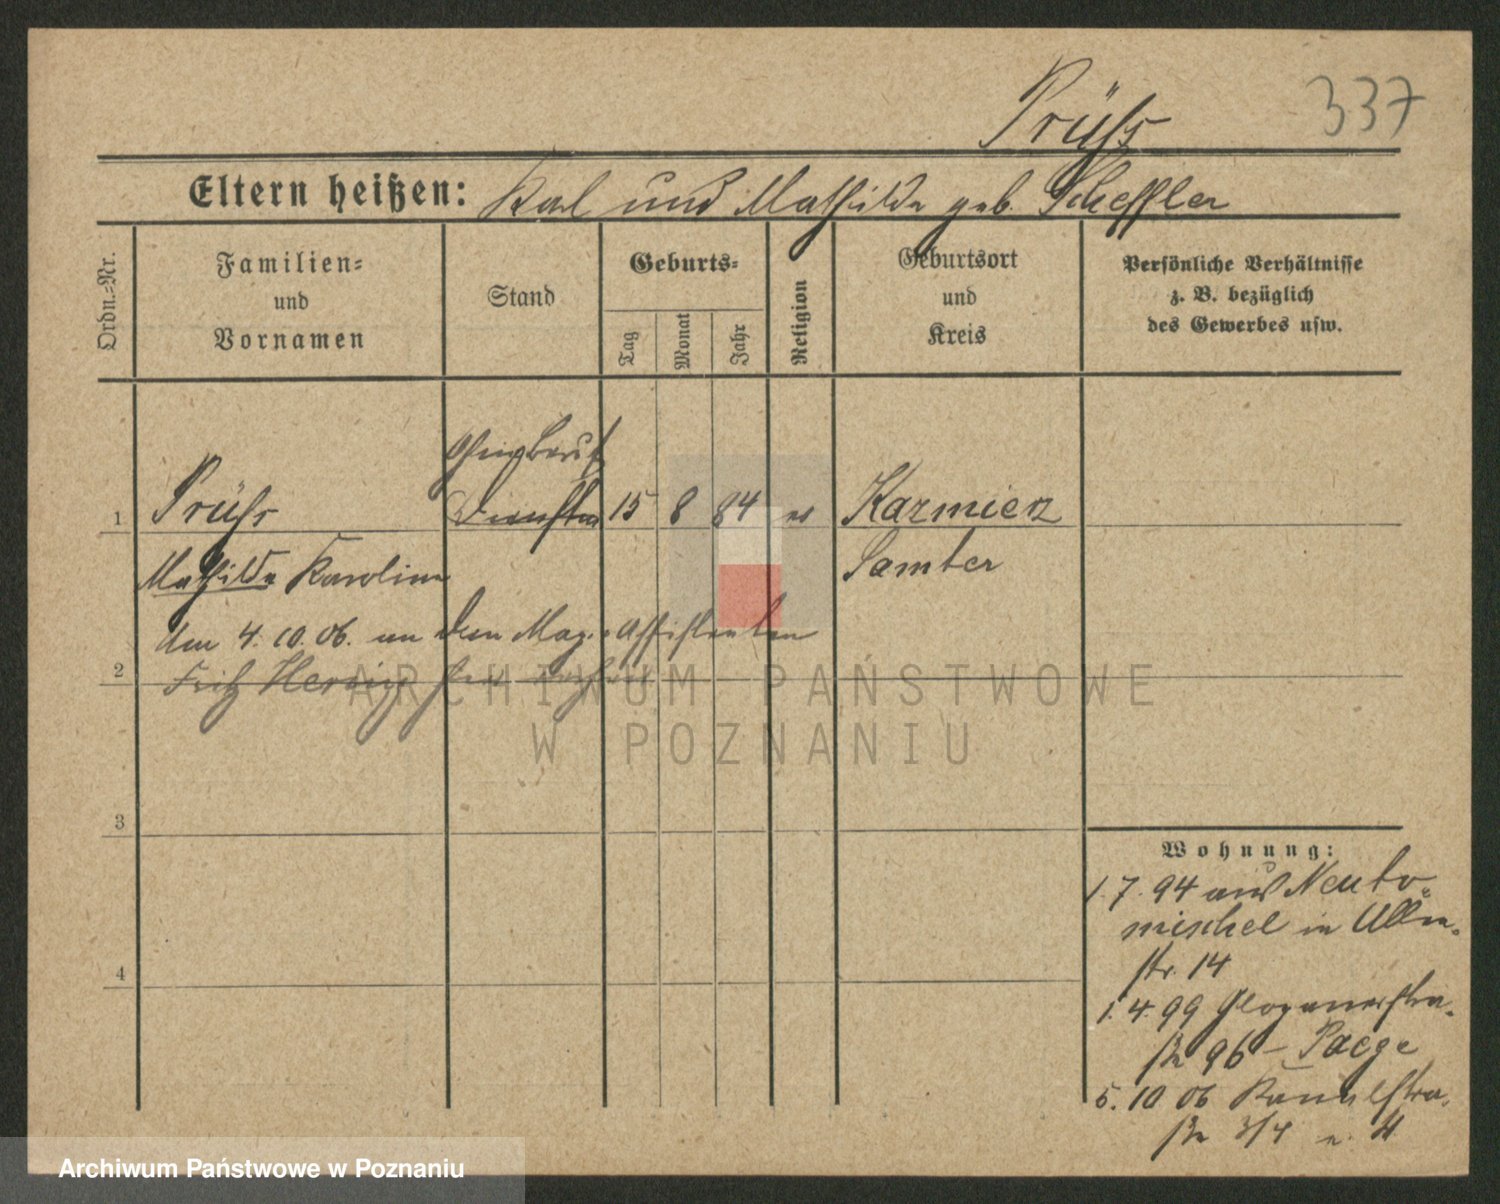 Prüß
337
Eltern heißen: Karl und Mathilde geb. Scheffler
Ordn.-Nr.
Familien-
und
Vornamen
Stand
Geburts-
Tag
Monat
Jahr
Religion
Geburtsort
und
Kreis
Persönliche Verhältnisse
z. B. bezüglich
des Gewerbes usw.
1
Prüß
15 8 84 ev
Kazmierz
Mathilde Karoline
Samter
Am 4.10.06. an den Mag.-Assistenten
2
Fritz
3
4
Wohnung:
1.7.94 aus Neuto-
mischel in
str. 14
1.4.99 Glogauerstra-
ße 96 – Paege
5.10 06 Kanalstra-
ße 3/4
ARCHIWUM PAŃSTWOWE
W POZNANIU
Archiwum Państwowe w Poznaniu